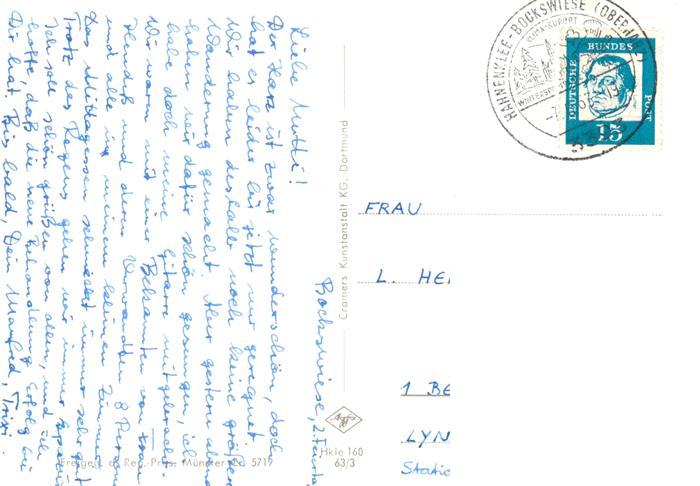 Bockswiese, 2.
Liebe Mutti!
Der Harz ist zwar wunderschön, doch
hat es leider bis jetzt nur geregnet.
Wir haben deshalb noch keine größere
Wanderung gemacht. Aber gestern abend
haben wir dafür schön gesungen, ich
habe doch meine Gitarre mitgebracht.
Wir waren mit einer Bekannten von
und deren Verwandten 8 Personen
und alle in meinem kleinen Zimmer.
Das Mittagessen schmeckt immer sehr gut.
Trotz des Regens gehen wir immer spazieren.
Ich soll schön grüßen von allen, und ich
hoffe, daß die neue Behandlung Erfolg bei
Dir hat. Bis bald, Dein Manfred,
Freigen. d. Reg.-Präs. Münster Cd 5719
Cramers Kunstanstalt KG, Dortmund
Agfa
Hkle 160
63/3
HAHNENKLEE-BOCKSWIESE (OBERHARZ)
KLIMA-KURORT
DEUTSCHE BUNDESPOST
15
FRAU
L. HE
1 BE
LYN
Static